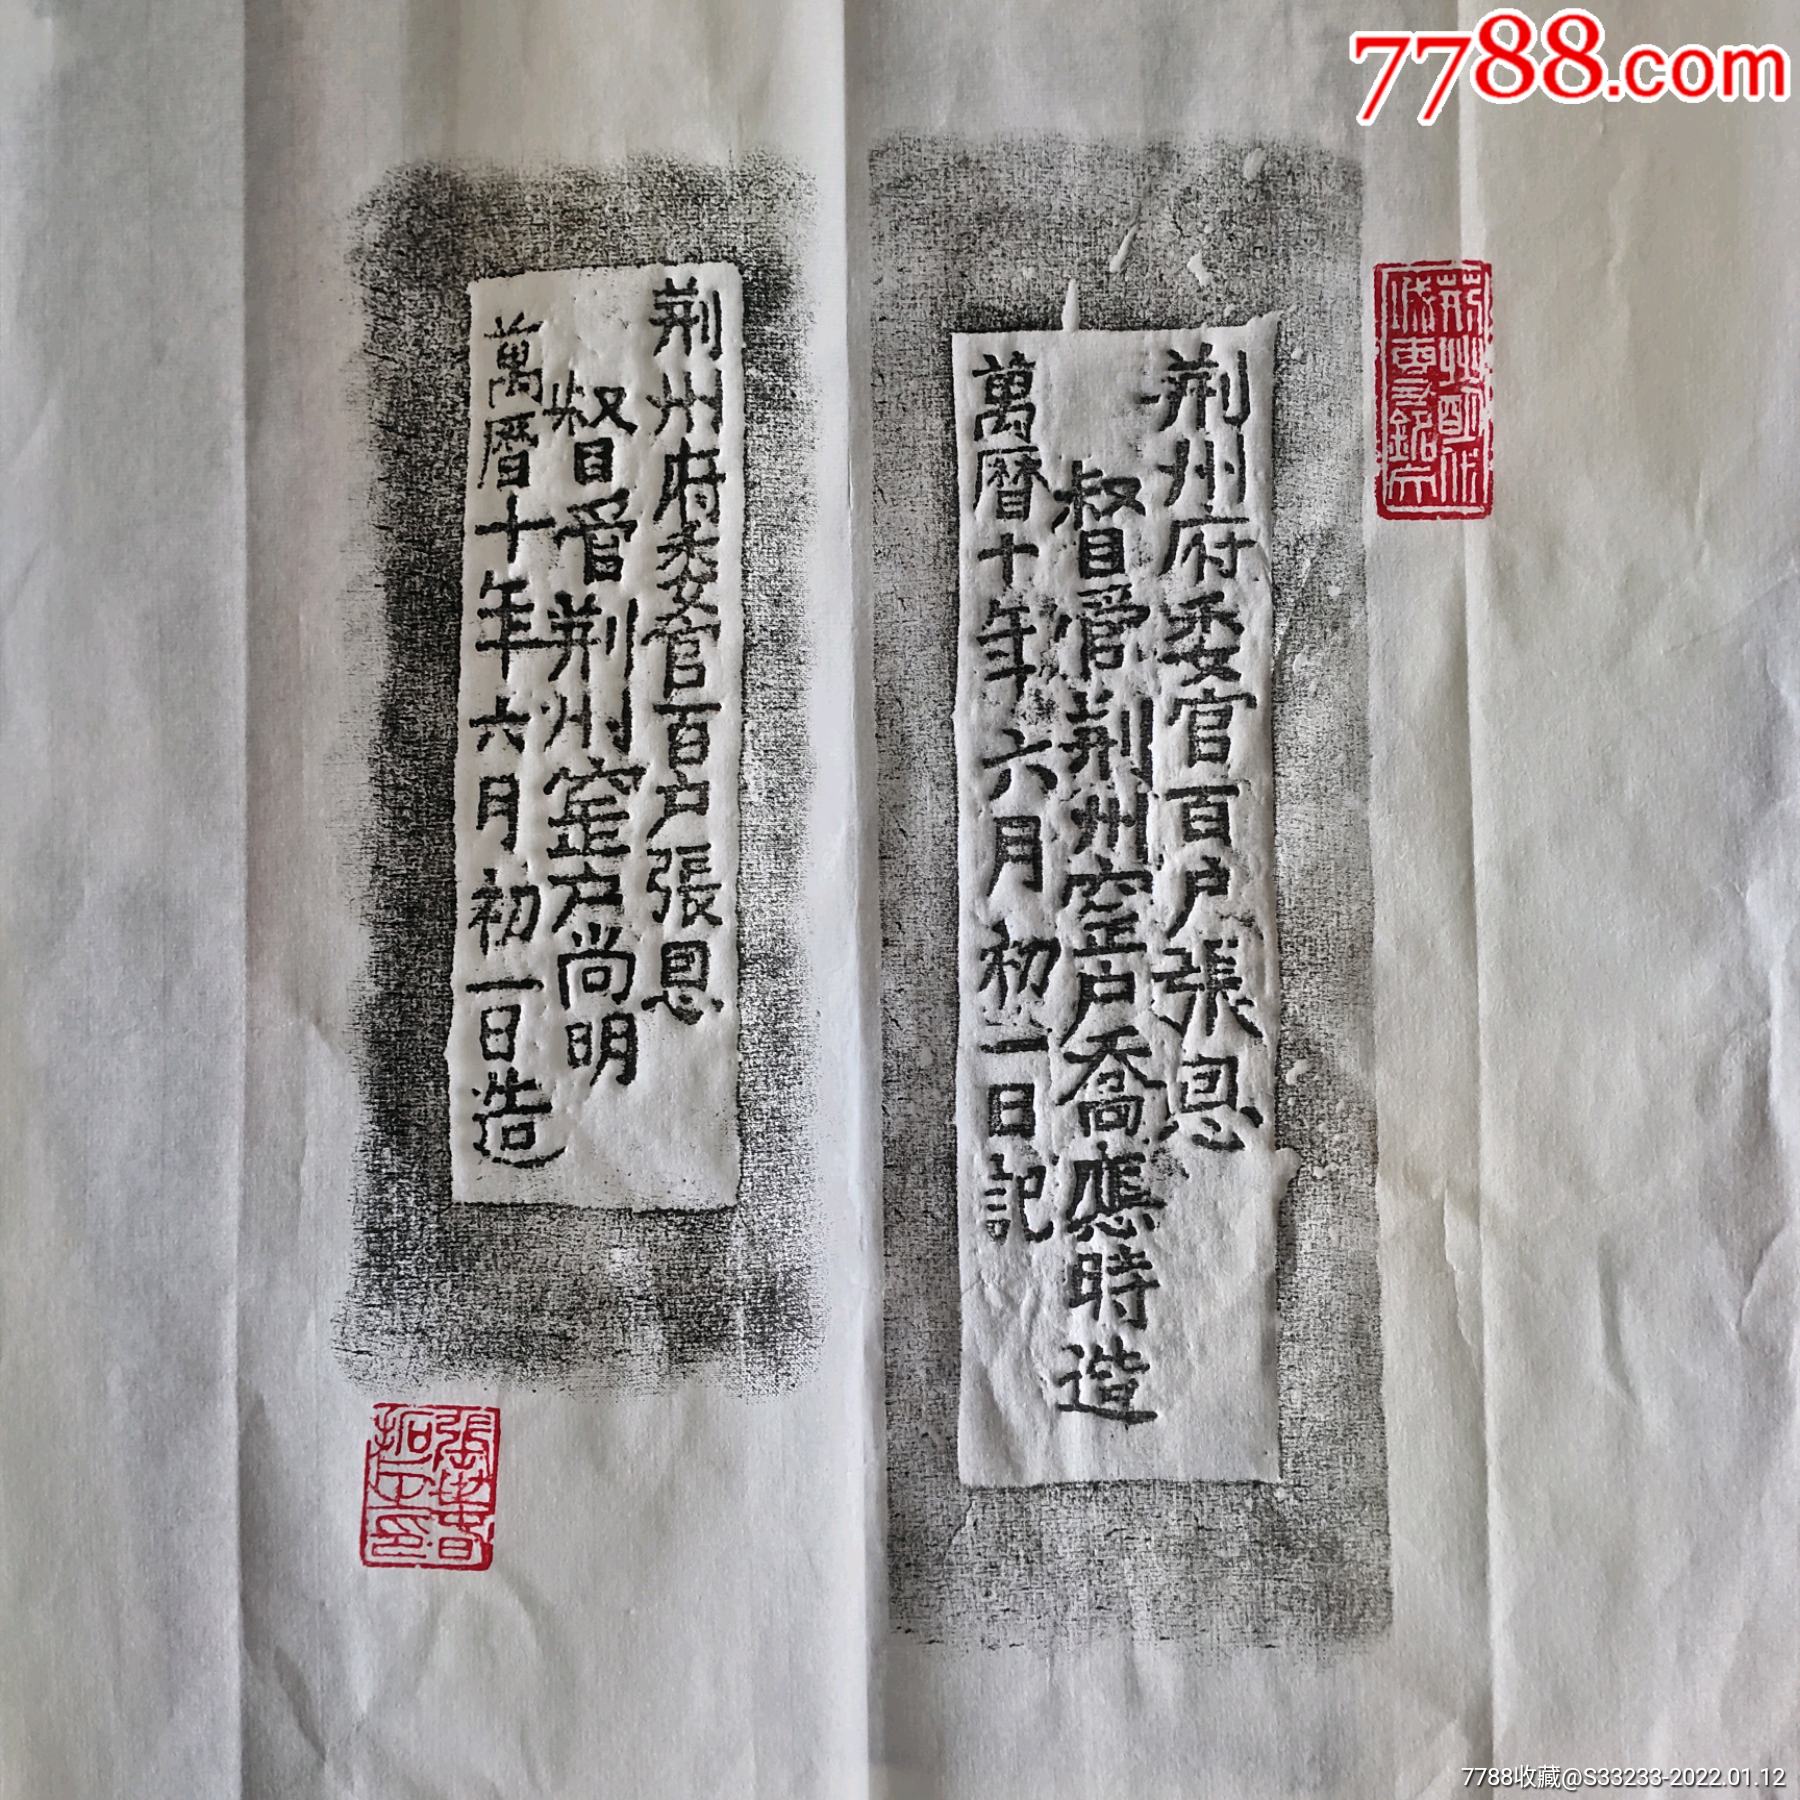 7788.com
荆州府委官百户張恩
督管荆州窑户喬應時造
萬曆十年六月初一日記
荆州府委官百户張恩
督管荆州窑户尚明
萬曆十年六月初一日造
7788收藏@S33233-2022.01.12